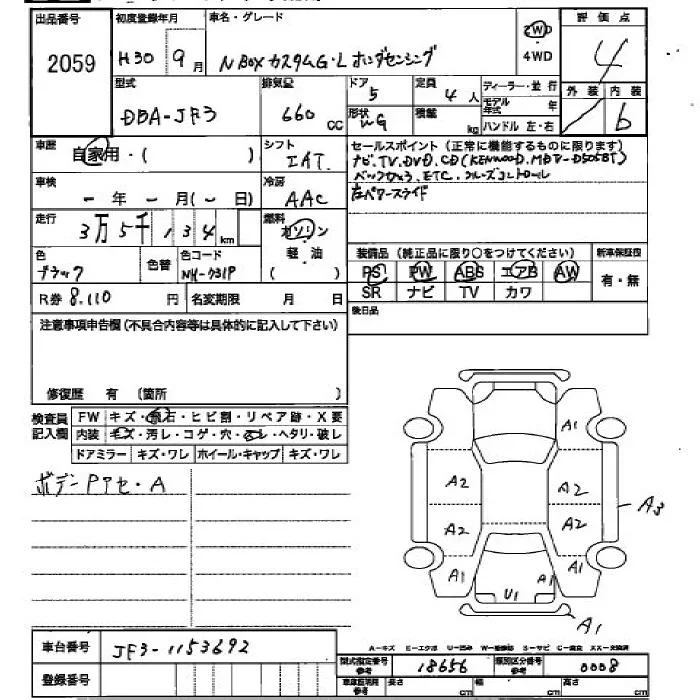 出品番号 初度登録年月 車名・グレード 評価点
2059 H30 9月 N BOX カスタムG・L ホンダセンシング 2WD ・ 4WD 4
型式 排気量 ドア 定員 ディーラー・並行 外装 内装
DBA-JF3 660 CC 5 4人 モデル年式 年 b
形状 WG 積載 kg ハンドル 左・右
車歴 自家用・( ) シフト IAT セールスポイント (正常に機能するものに限ります)
ナビ, TV, DVD, CD (KENWOOD, MDV-D505BT)
車検 ー年ー月(ー日) 冷房 AAC バックカメラ, ETC, クルーズコントロール
左パワースライド
走行 3万5千134km 燃料 ガソリン・軽油 ( )
装備品 (純正品に限り○をつけてください) 新車保証役
色 ブラック 色替 色コード NH-731P PS PW ABS エアB AW 有・無
SR ナビ TV カワ
R券 8,110 円 名変期限 月 日
後日品
注意事項申告欄 (不具合内容等は具体的に記入して下さい)
修復歴 有 (箇所 )
検査員記入欄 FW キズ・飛石・ヒビ割・リペア跡・X要
内装 キズ・汚レ・コゲ・穴・スレ・ヘタリ・破レ
ドアミラー キズ・ワレ ホイール・キャップ キズ・ワレ
ボデーPアセ・A
A1
A2 A2 A3
A2 A2
A1 U1 A1 A1
A1
車台番号 JF3-1153692
A-キズ E-エクボ U-凹み W-補修跡 S-サビ C-腐食 XX-交換済
型式指定番号 参考 18656 類別区分番号 参考 0008
登録番号 車庫証明用 参考 長さ cm 幅 cm 高さ cm